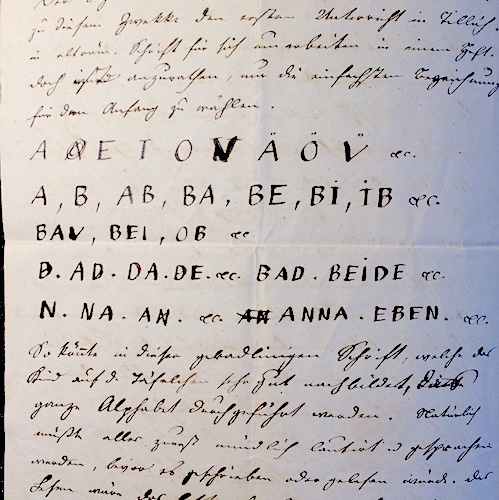 zu diesem Zwekke den ersten Unterricht in Tillich.
in altröm. Schrift für sich um arbeiten in einem Heft.
doch anzurathen, nur die einfachsten Bezeichnung
für den Anfang zu wählen.
A E T O V Ä Ö V̈ &c.
A, B, AB, BA, BE, BI, IB &c.
BAV, BEI, OB &c
D. AD. DA. DE. &c. BAD. BEIDE &c.
N. NA. AN. &c. ANNA. EBEN. &c.
So könte in dieser gebadlingen Schrift, welche das
Kind auf d. Täfelchen sehr gut nachbildet, das
ganze Alphabet durchgeführt werden. Natürlich
müßte alles zuerst mündlich lautirt u gesprochen
werden, bevor es geschrieben oder gelesen würde. Das
Lesen wäre das